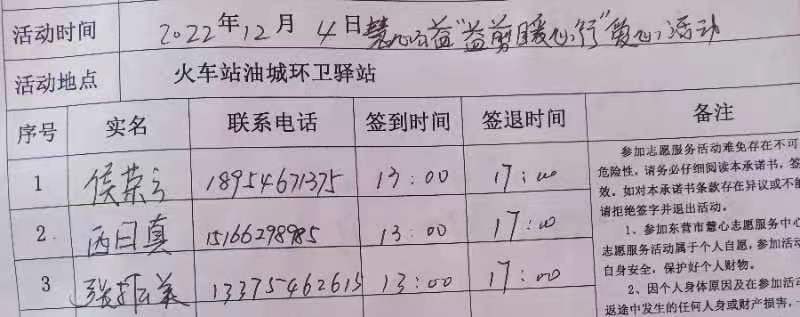 活动时间 2022年12月4日慧心公益“益剪暖心行”爱心活动
活动地点 火车站油城环卫驿站
序号 实名 联系电话 签到时间 签退时间 备注
1 侯荣云 18954671375 13:00 17:00
2 日真 15166298985 13:00 17:00
3 张 美 13375462615 13:00 17:00
参加志愿服务活动难免存在不可
危险性，请务必仔细阅读本承诺书，签
效。如对本承诺书条款存在异议或不能
请拒绝签字并退出活动。
1、参加东营市慧心志愿服务中心
志愿服务活动属于个人自愿，参加活动
自身安全，保护好个人财物。
2、因个人身体原因及在参加活动
返途中发生的任何人身或财产损害，